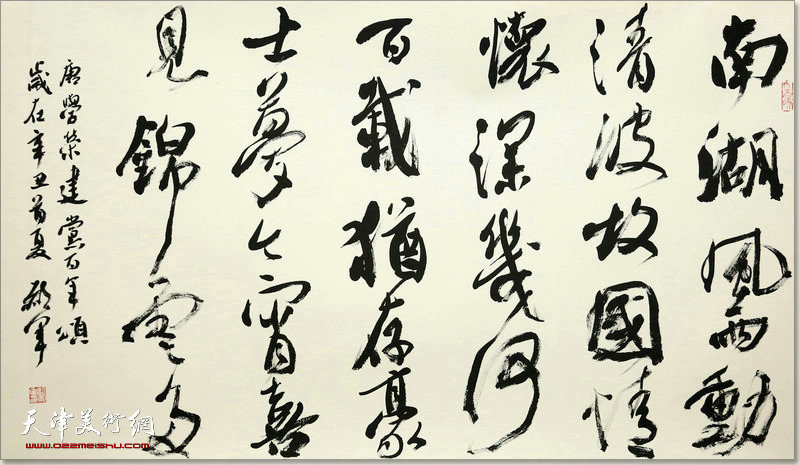 南湖風雨動
清波故國情
懷深幾何
百載猶存豪
士夢今宵喜
見錦雲多
唐學榮建黨百年頌
歲在辛丑首夏
天津美術網
www.022meishu.com